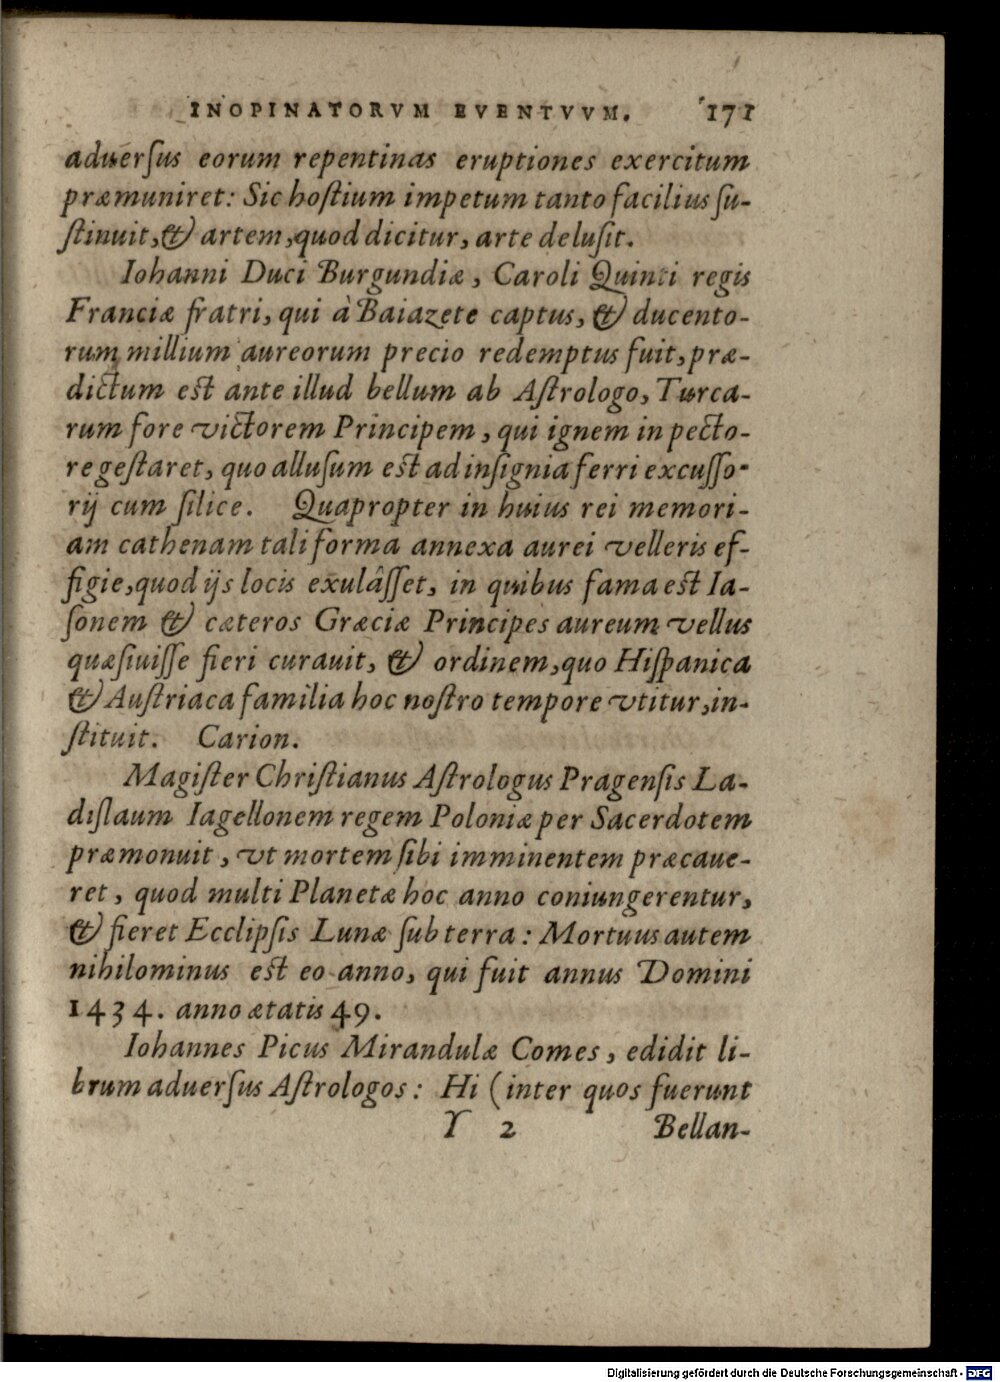 INOPINATORVM EVENTVVM. 171
aduerſus eorum repentinas eruptiones exercitum
præmuniret: Sic hoſtium impetum tanto facilius ſu-
ſtinuit, & artem, quod dicitur, arte deluſit.
Iohanni Duci Burgundiæ, Caroli Quinti regis
Franciæ fratri, qui à Baiazete captus, & ducento-
rum millium aureorum precio redemptus fuit, præ-
dictum eſt ante illud bellum ab Aſtrologo, Turca-
rum fore victorem Principem, qui ignem in pecto-
re geſtaret, quo alluſum eſt ad inſignia ferri excuſſo-
rij cum ſilice. Quapropter in huius rei memori-
am cathenam tali forma annexa aurei velleris ef-
figie, quod ijs locis exulâſſet, in quibus fama eſt Ia-
ſonem & cæteros Græciæ Principes aureum vellus
quæſiuiſſe fieri curauit, & ordinem, quo Hiſpanica
& Auſtriaca familia hoc noſtro tempore vtitur, in-
ſtituit. Carion.
Magiſter Chriſtianus Aſtrologus Pragenſis La-
diſlaum Iagellonem regem Poloniæ per Sacerdotem
præmonuit, vt mortem ſibi imminentem præcaue-
ret, quod multi Planetæ hoc anno coniungerentur,
& fieret Ecclipſis Lunæ ſub terra: Mortuus autem
nihilominus eſt eo anno, qui fuit annus Domini
1434. anno ætatis 49.
Iohannes Picus Mirandulæ Comes, edidit li-
brum aduerſus Aſtrologos: Hi (inter quos fuerunt
Y 2 Bellan-
Digitalisierung gefördert durch die Deutsche Forschungsgemeinschaft - DFG